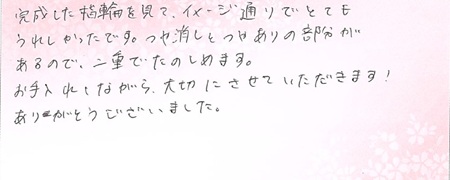 完成した指輪を見て、イメージ通りでとても
うれしかったです。つや消しとつやありの部分が
あるので、二重でたのしめます。
お手入れしながら、大切にさせていただきます！
ありがとうございました。